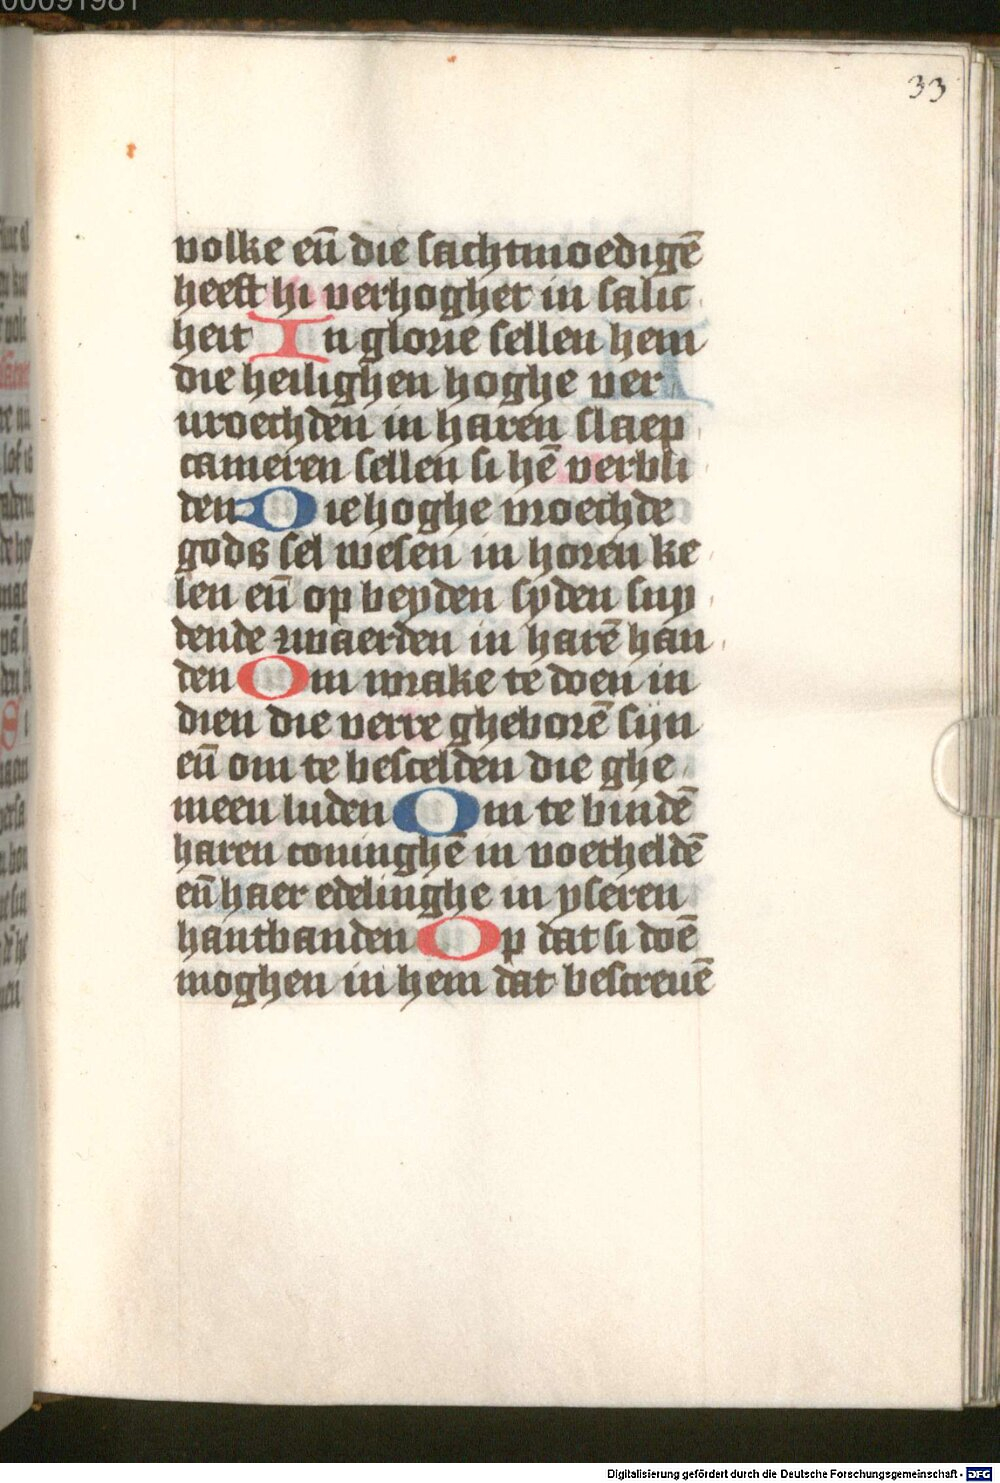 33
volke eñ die sachtmoedigē
heeft hi verhoghet in salic
heit In glorie sellen hem
die heilighen hoghe ver
vroechden in haren slaep
cameren sellen si hē verbli
den Die hoghe vroechde
gods sel wesen in horen ke
len eñ op beyden syden sny
dende zwaerden in harē han
den Om wrake te doen in
dien die verre gheborē sijn
eñ om te bescelden die ghe
meen luden Om te bindē
haren coninghē in voetheldē
eñ haer edelinghe in yseren
hantbanden Op dat si doē
moghen in hem dat bescreuē
Digitalisierung gefördert durch die Deutsche Forschungsgemeinschaft - DFG